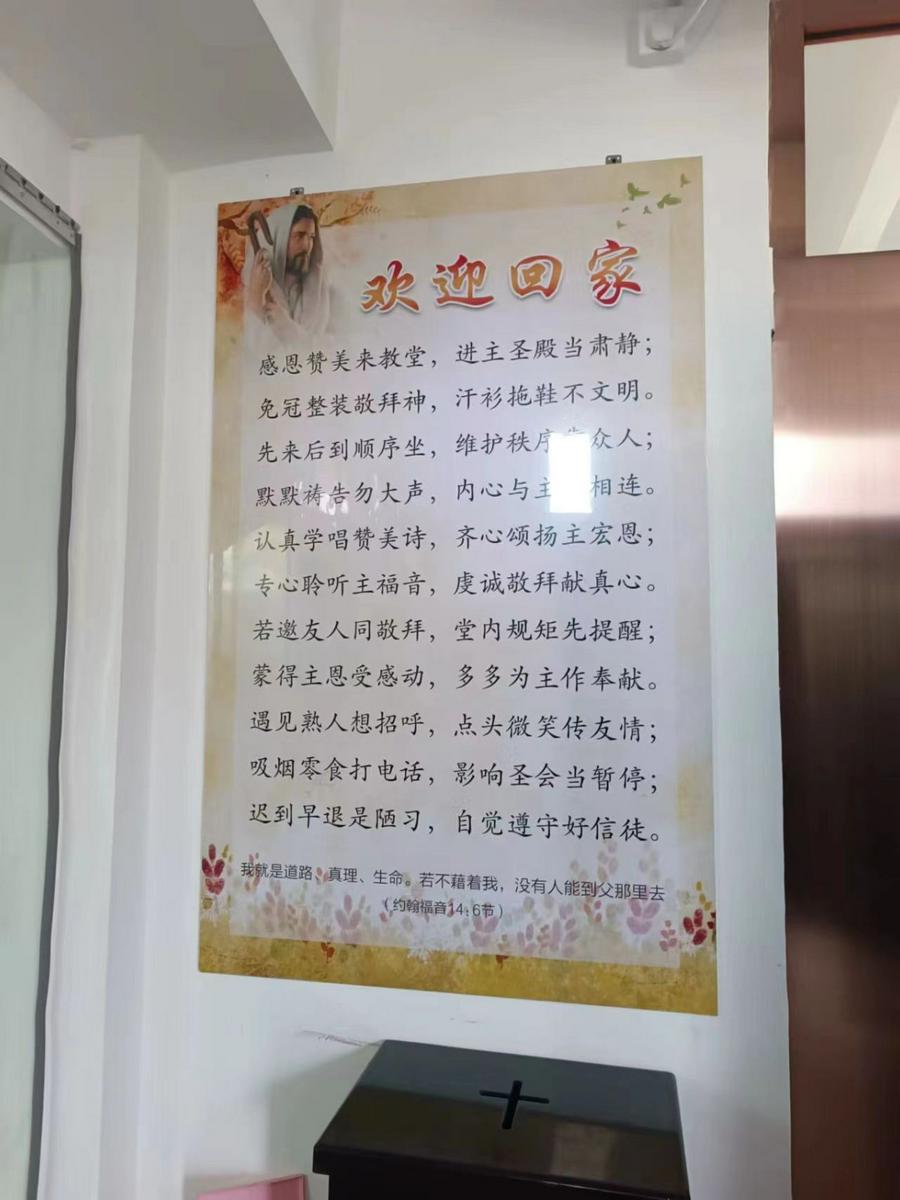 欢迎回家
感恩赞美来教堂，进主圣殿当肃静；
免冠整装敬拜神，汗衫拖鞋不文明。
先来后到顺序坐，维护秩序众人；
默默祷告勿大声，内心与主相连。
认真学唱赞美诗，齐心颂扬主宏恩；
专心聆听主福音，虔诚敬拜献真心。
若邀友人同敬拜，堂内规矩先提醒；
蒙得主恩受感动，多多为主作奉献。
遇见熟人想招呼，点头微笑传友情；
吸烟零食打电话，影响圣会当暂停；
迟到早退是陋习，自觉遵守好信徒。
我就是道路、真理、生命。若不藉着我，没有人能到父那里去
（约翰福音14：6节）